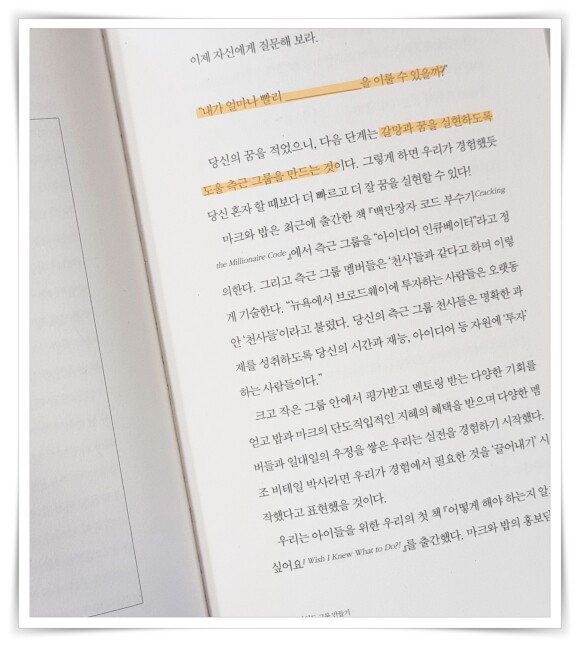 이제 자신에게 질문해 보라.
“내가 얼마나 빨리 ____________을 이룰 수 있을까?”
당신의 꿈을 적었으니, 다음 단계는 갈망과 꿈을 실현하도록
도울 측근 그룹을 만드는 것이다. 그렇게 하면 우리가 경험했듯
당신 혼자 할 때보다 더 빠르고 더 잘 꿈을 실현할 수 있다!
마크와 밥은 최근에 출간한 책 『백만장자 코드 부수기Cracking
the Millionaire Code』에서 측근 그룹을 “아이디어 인큐베이터”라고 정
의한다. 그리고 측근 그룹 멤버들은 ‘천사’들과 같다고 하며 이렇
게 기술한다. “뉴욕에서 브로드웨이에 투자하는 사람들은 오랫동
안 ‘천사들’이라고 불렸다. 당신의 측근 그룹 천사들은 명확한 과
제를 성취하도록 당신의 시간과 재능, 아이디어 등 자원에 ‘투자’
하는 사람들이다.”
크고 작은 그룹 안에서 평가받고 멘토링 받는 다양한 기회를
얻고 밥과 마크의 단도직입적인 지혜의 혜택을 받으며 다양한 멤
버들과 일대일의 우정을 쌓은 우리는 실전을 경험하기 시작했다.
조 비테일 박사라면 우리가 경험에서 필요한 것을 ‘끌어내기’ 시
작했다고 표현했을 것이다.
우리는 아이들을 위한 우리의 첫 책 『어떻게 해야 하는지 알
싶어요! Wish I Knew What to Do?!』를 출간했다. 마크와 밥의 홍보
그룹 만들기